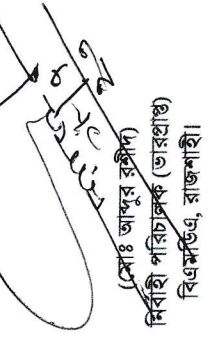 (মোঃ আব্দুর রশীদ)
নির্বাহী পরিচালক (ভারপ্রাপ্ত)
বিএমডিএ, রাজশাহী।